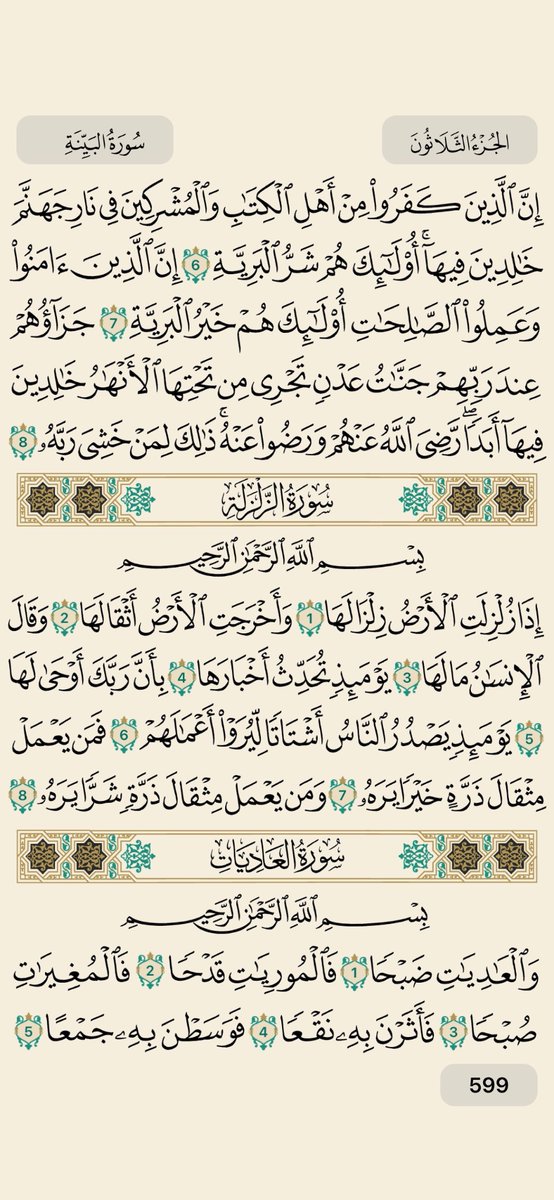 الجُزْءُ الثَّلَاثُونَ
سُورَةُ البَيِّنَةِ
إِنَّ ٱلَّذِينَ كَفَرُوا۟ مِنْ أَهْلِ ٱلْكِتَـٰبِ وَٱلْمُشْرِكِينَ فِى نَارِ جَهَنَّمَ
خَـٰلِدِينَ فِيهَآ ۚ أُو۟لَـٰٓئِكَ هُمْ شَرُّ ٱلْبَرِيَّةِ 6 إِنَّ ٱلَّذِينَ ءَامَنُوا۟
وَعَمِلُوا۟ ٱلصَّـٰلِحَـٰتِ أُو۟لَـٰٓئِكَ هُمْ خَيْرُ ٱلْبَرِيَّةِ 7 جَزَآؤُهُمْ
عِندَ رَبِّهِمْ جَنَّـٰتُ عَدْنٍ تَجْرِى مِن تَحْتِهَا ٱلْأَنْهَـٰرُ خَـٰلِدِينَ
فِيهَآ أَبَدًا ۖ رَّضِىَ ٱللَّهُ عَنْهُمْ وَرَضُوا۟ عَنْهُ ۚ ذَٰلِكَ لِمَنْ خَشِىَ رَبَّهُۥ 8
سُورَةُ الزَّلْزَلَةِ
بِسْمِ ٱللَّهِ ٱلرَّحْمَـٰنِ ٱلرَّحِيمِ
إِذَا زُلْزِلَتِ ٱلْأَرْضُ زِلْزَالَهَا 1 وَأَخْرَجَتِ ٱلْأَرْضُ أَثْقَالَهَا 2 وَقَالَ
ٱلْإِنسَـٰنُ مَا لَهَا 3 يَوْمَئِذٍ تُحَدِّثُ أَخْبَارَهَا 4 بِأَنَّ رَبَّكَ أَوْحَىٰ لَهَا
5 يَوْمَئِذٍ يَصْدُرُ ٱلنَّاسُ أَشْتَاتًا لِّيُرَوْا۟ أَعْمَـٰلَهُمْ 6 فَمَن يَعْمَلْ
مِثْقَالَ ذَرَّةٍ خَيْرًا يَرَهُۥ 7 وَمَن يَعْمَلْ مِثْقَالَ ذَرَّةٍ شَرًّا يَرَهُۥ 8
سُورَةُ العَادِيَاتِ
بِسْمِ ٱللَّهِ ٱلرَّحْمَـٰنِ ٱلرَّحِيمِ
وَٱلْعَـٰدِيَـٰتِ ضَبْحًا 1 فَٱلْمُورِيَـٰتِ قَدْحًا 2 فَٱلْمُغِيرَٰتِ
صُبْحًا 3 فَأَثَرْنَ بِهِۦ نَقْعًا 4 فَوَسَطْنَ بِهِۦ جَمْعًا 5
599